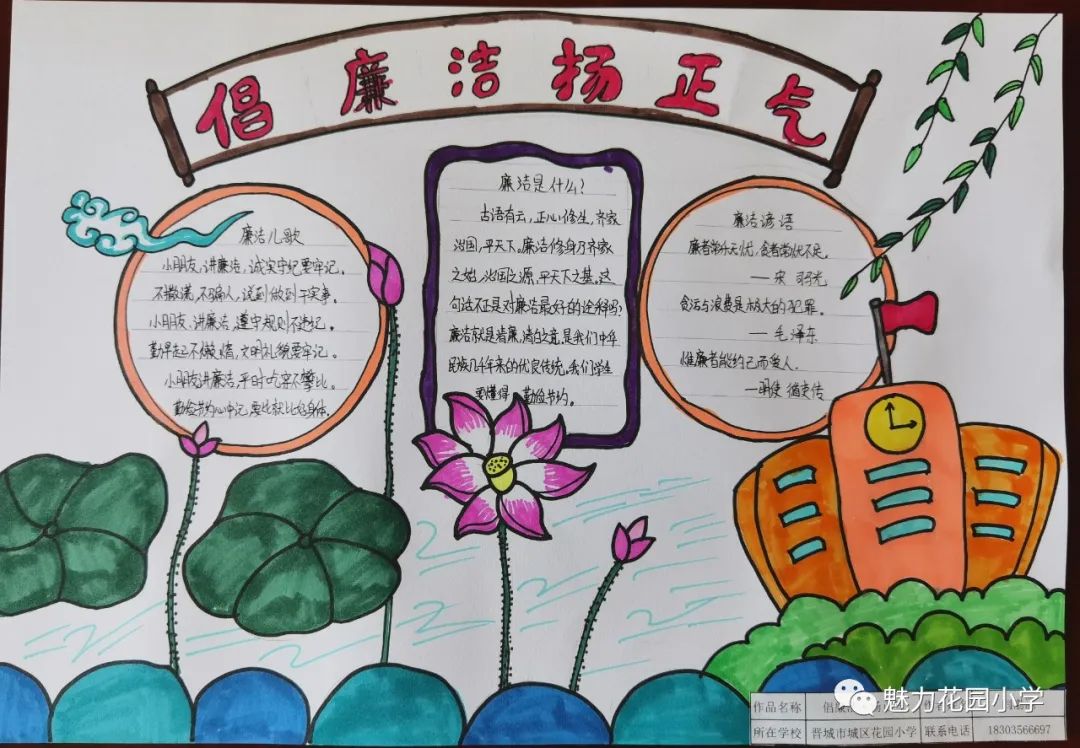 倡廉洁扬正气
廉洁儿歌
小朋友,讲廉洁,诚实守纪要牢记。
不撒谎,不骗人,说到做到干实事。
小朋友,讲廉洁,遵守规则不违纪。
勤早起不懒惰,文明礼貌要牢记。
小朋友讲廉洁,平时吃穿不攀比。
勤俭节约心中记,要比就比好身体。
廉洁是什么?
古语有云,正心修生,齐家
治国,平天下。廉洁修身乃齐家
之始,治国之源,平天下之基,这
句话不正是对廉洁最好的诠释吗?
廉洁就是清廉,清白之意,是我们中华
民族几千年来的优良传统,我们学生
要懂得 勤俭节约。
廉洁谚语
廉者常乐无忧,贪者常忧不足。
——宋
贪污与浪费是极大的犯罪。
——毛泽东
惟廉者能约己而爱人。
—明史 循吏传
魅力花园小学
作品名称 倡廉洁
所在学校 晋城市城区花园小学 联系电话 18303566697